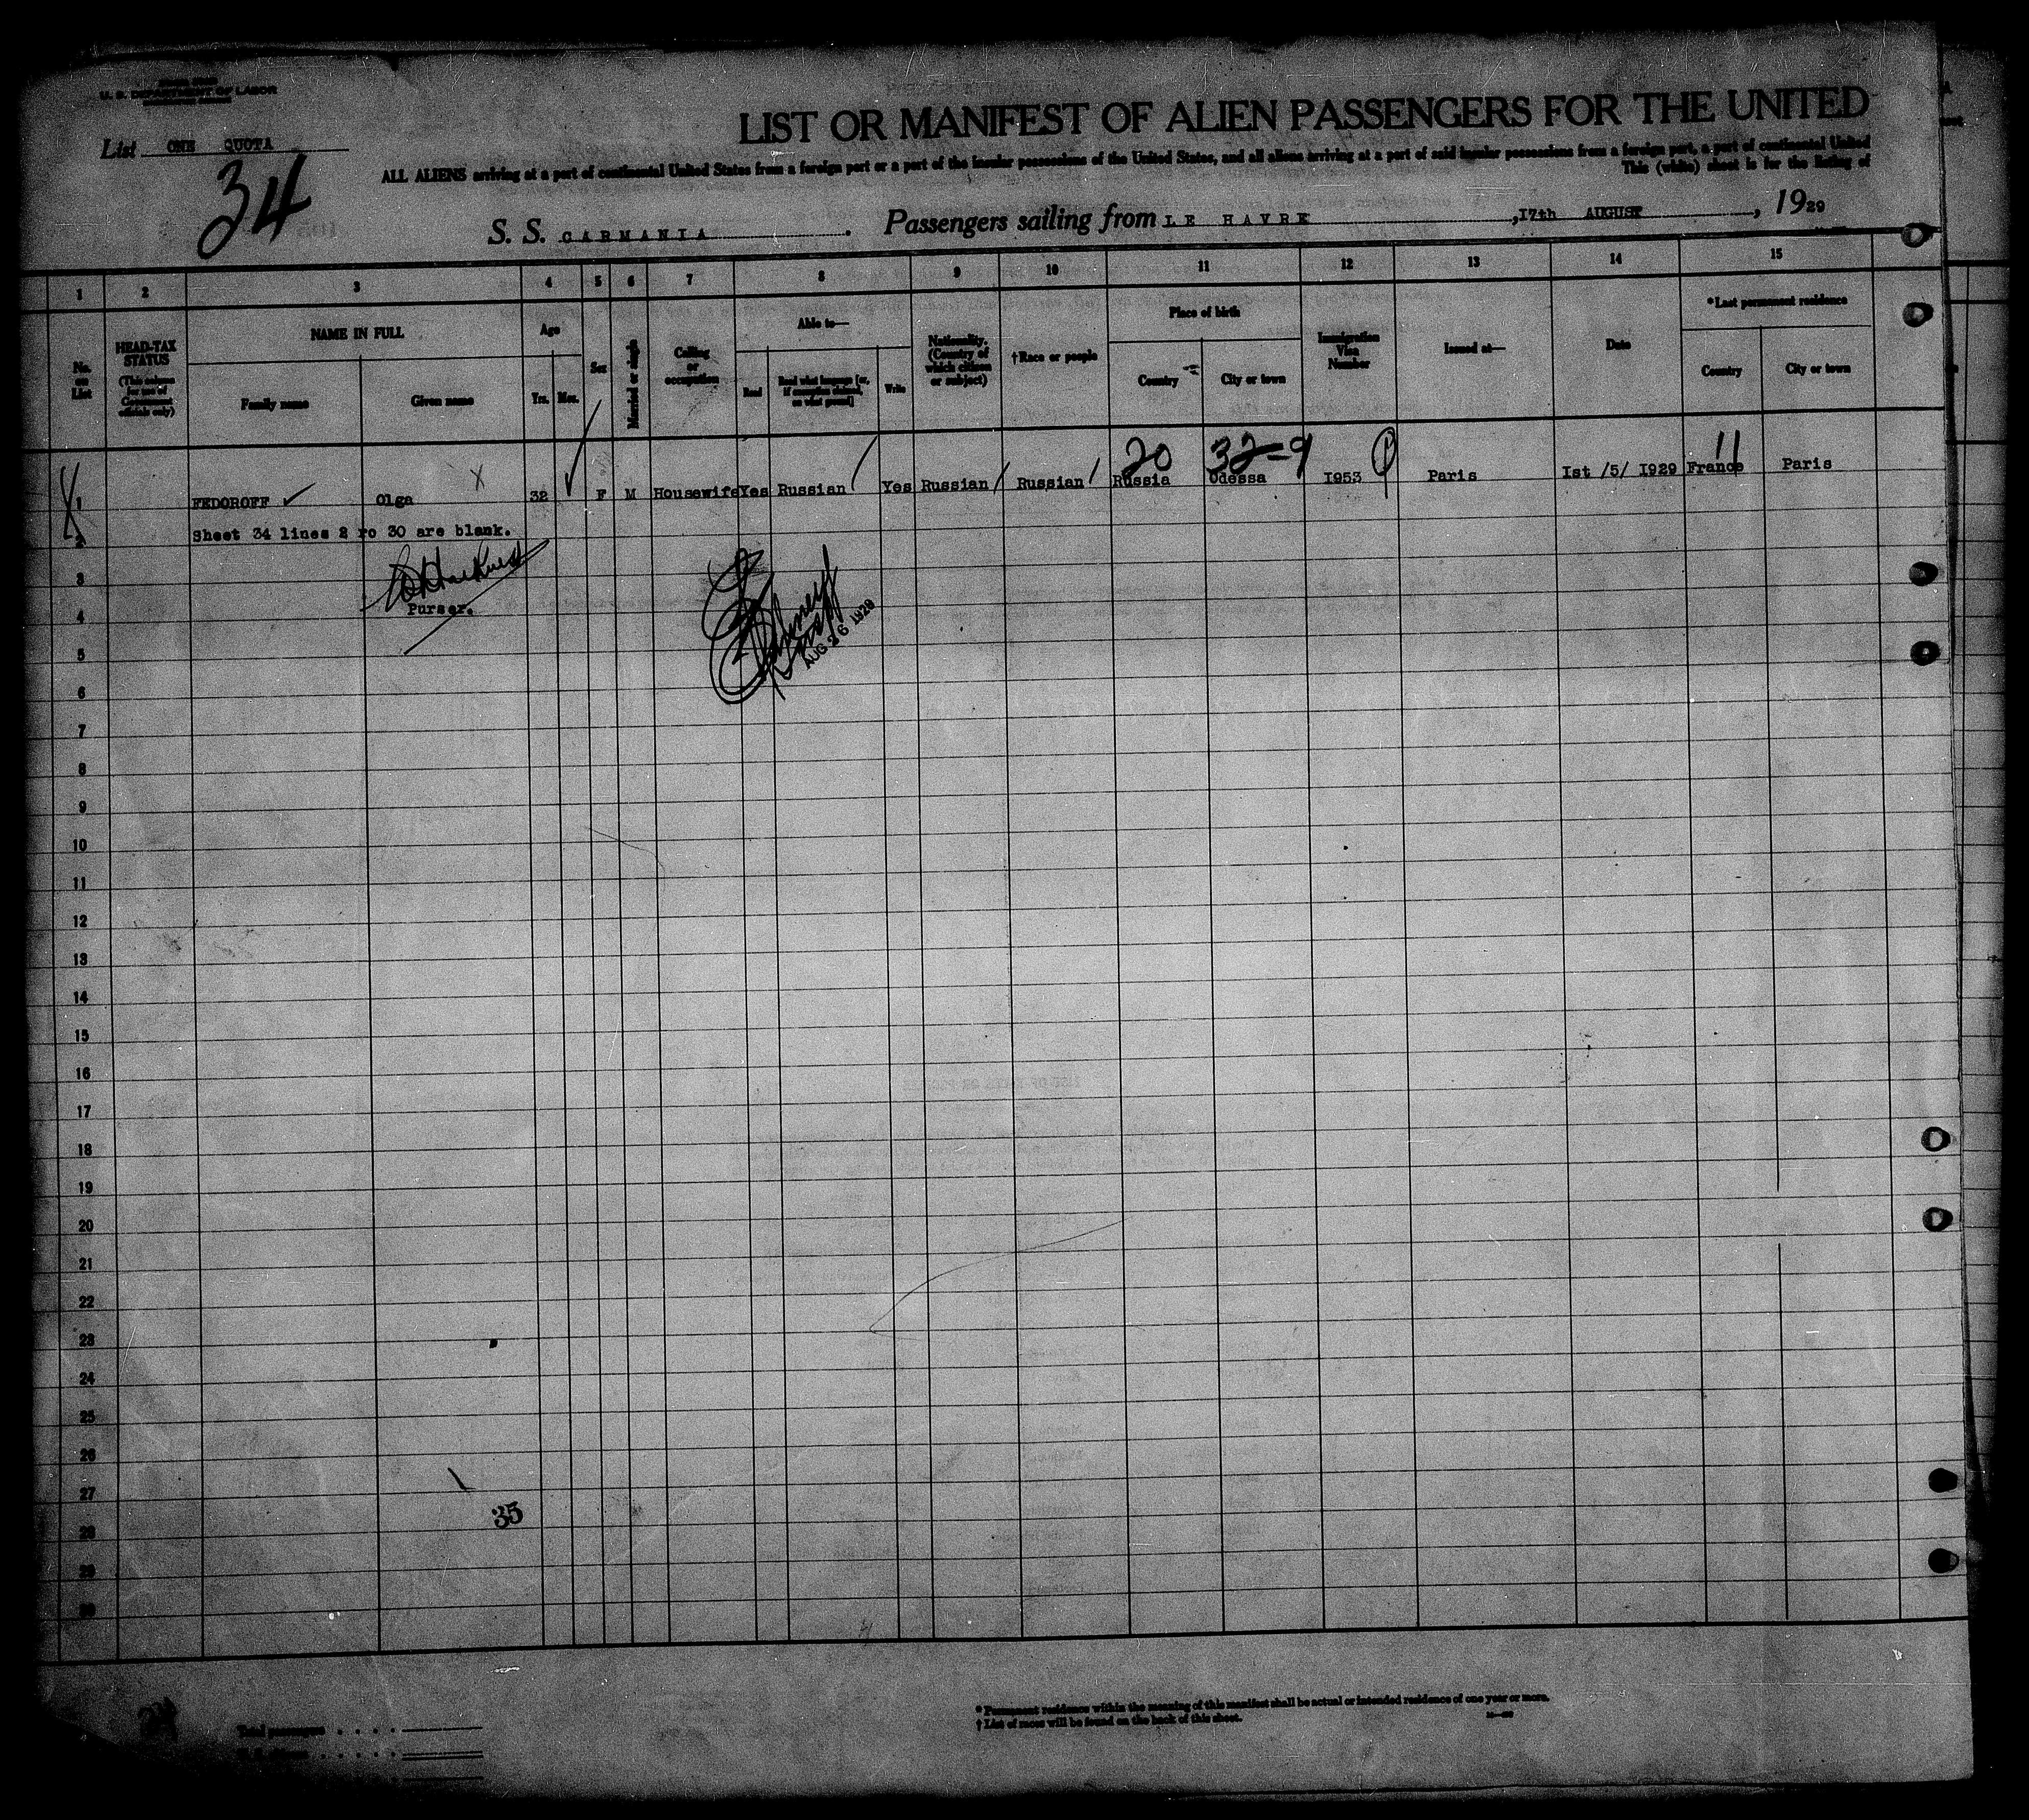 U. S. DEPARTMENT OF LABOR
List ONE QUOTA
34
LIST OR MANIFEST OF ALIEN PASSENGERS FOR THE UNITED
ALL ALIENS arriving at a port of continental United States from a foreign port or a port of the insular possessions of the United States, and all aliens arriving at a port of said insular possessions from a foreign port, a port of continental United
This (white) sheet is for the listing of
S. S. CARMANIA. Passengers sailing from LE HAVRE, 17th AUGUST, 1929
1 2 3 4 5 6 7 8 9 10 11 12 13 14 15
No. on List
HEAD-TAX STATUS (This column for use of Government officials only)
NAME IN FULL
Family name Given name
Age
Yrs. Mos.
Sex
Married or single
Calling or occupation
Able to—
Read Read what language [or, if exemption claimed, on what ground] Write
Nationality. (Country of which citizen or subject)
†Race or people
Place of birth
Country City or town
Immigration Visa Number
Issued at—
Date
*Last permanent residence
Country City or town
20 32-9 11
1 FEDOROFF Olga 32 F M Housewife Yes Russian Yes Russian Russian Russia Odessa I953 Paris Ist /5/ I929 France Paris
2 Sheet 34 lines 2 ro 30 are blank.
3
4 Purser.
AUG 26 1929
5
6
7
8
9
10
11
12
13
14
15
16
17
18
19
20
21
22
23
24
25
26
27
35
28
29
30
Total passengers
* Permanent residence within the meaning of this manifest shall be actual or intended residence of one year or more.
† List of races will be found on the back of this sheet.